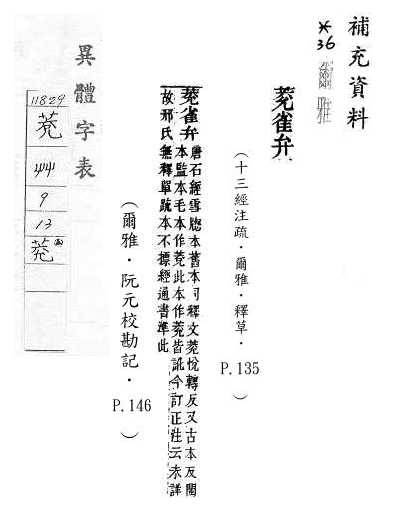 補充資料
*36 爾雅
茺雀弁
（十三經注疏．爾雅．釋草．P.135）
茺雀弁唐石經雪牕本舊本同釋文茺悅轉反又古本反閩
本監本毛本作莌此本作萖皆訛今訂正注云未詳
故邢氏無釋單疏本不標經通書準此
（爾雅．阮元校勘記．P.146）
異體字表
11829
艸
9
13